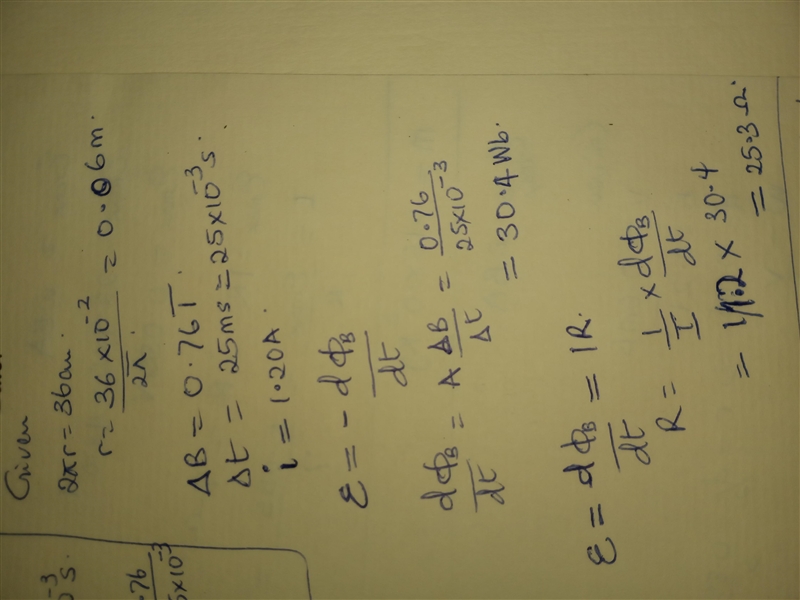 Given
2πr = 36cm.
r = 36 × 10⁻² / 2π = 0.06m.
ΔB = 0.76T.
Δt = 25ms = 25×10⁻³s.
i = 1.20A.
ε = - dΦ_B / dt
dΦ_B / dt = A ΔB / Δt = 0.76 / 25×10⁻³
= 30.4 Wb.
ε = dΦ_B / dt = IR.
R = 1 / I × dΦ_B / dt
= 1/1.2 × 30.4
= 25.3 Ω.
⁻³s.
.76
×10⁻³